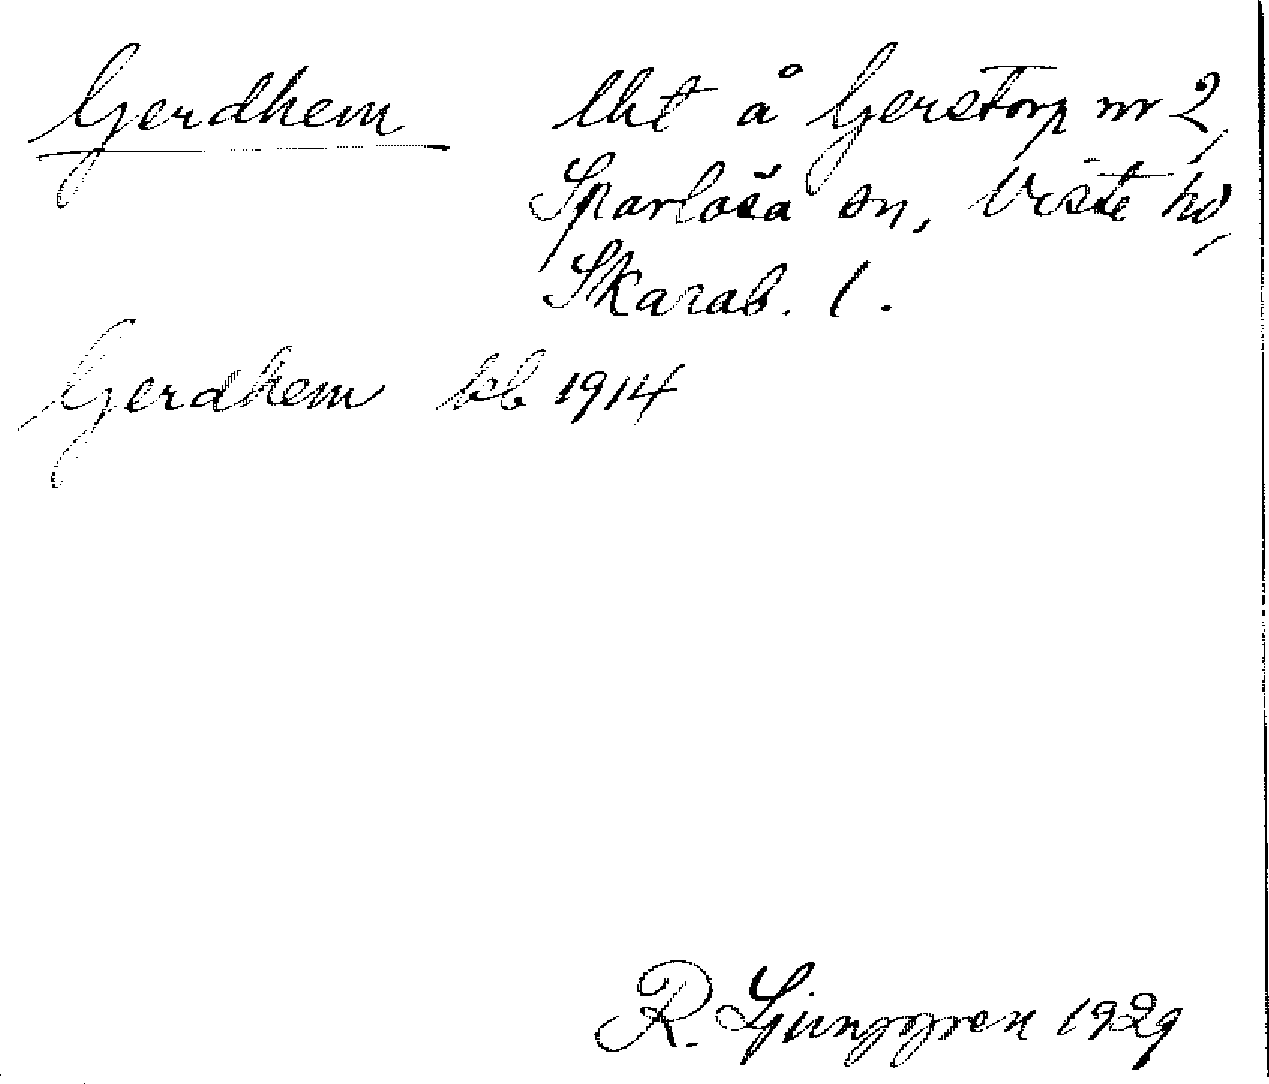 Gerdhem lht å Gerstorp nr 2,
Sparlösa sn, Viste hd,
Skarab. l.
Gerdhem kb 1914
R. Ljunggren 1929